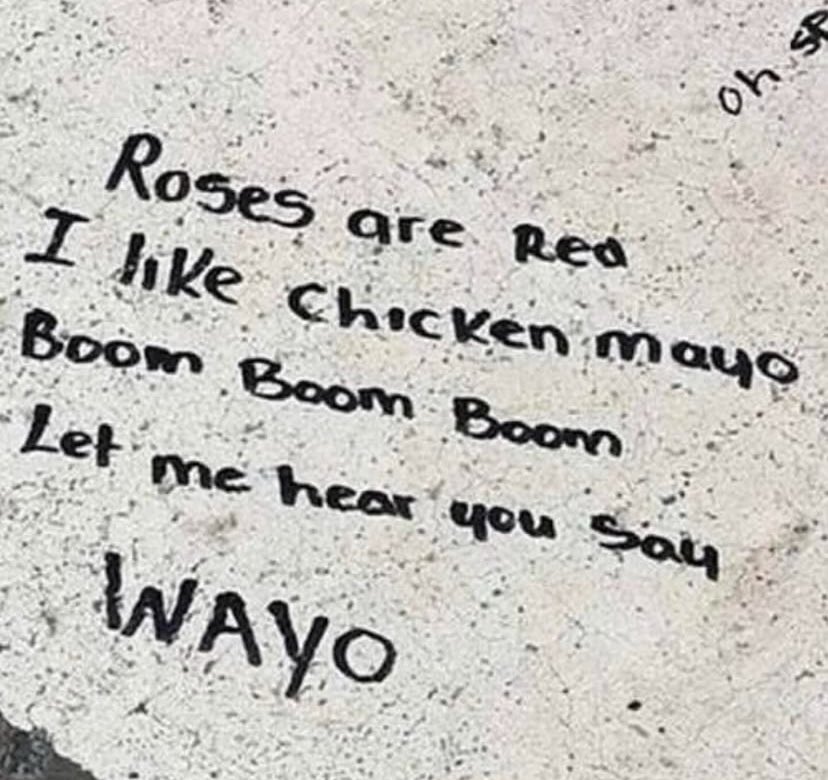 Oh
Roses are Red
I like Chicken mayo
Boom Boom Boom
Let me hear you Say
WAYO